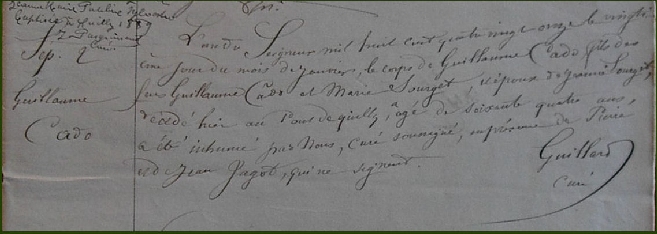 Jeanne Marie Pauline
Baptisée à Quilly
Curé
Sep. 2
Guillaume
Cado
L'an du Seigneur mil huit cent quatre vingt onze le vingt-
jour du mois de janvier, le corps de Guillaume Cado fils des
feus Guillaume Cado et Marie Sourget époux de Jeanne Sourget,
décédé hier au de quilly, âgé de soixante quatre ans,
a été inhumé par Nous, Curé soussigné, en présence de Pierre
et de Jean Pagot, qui ne signent.
Guillard
Curé